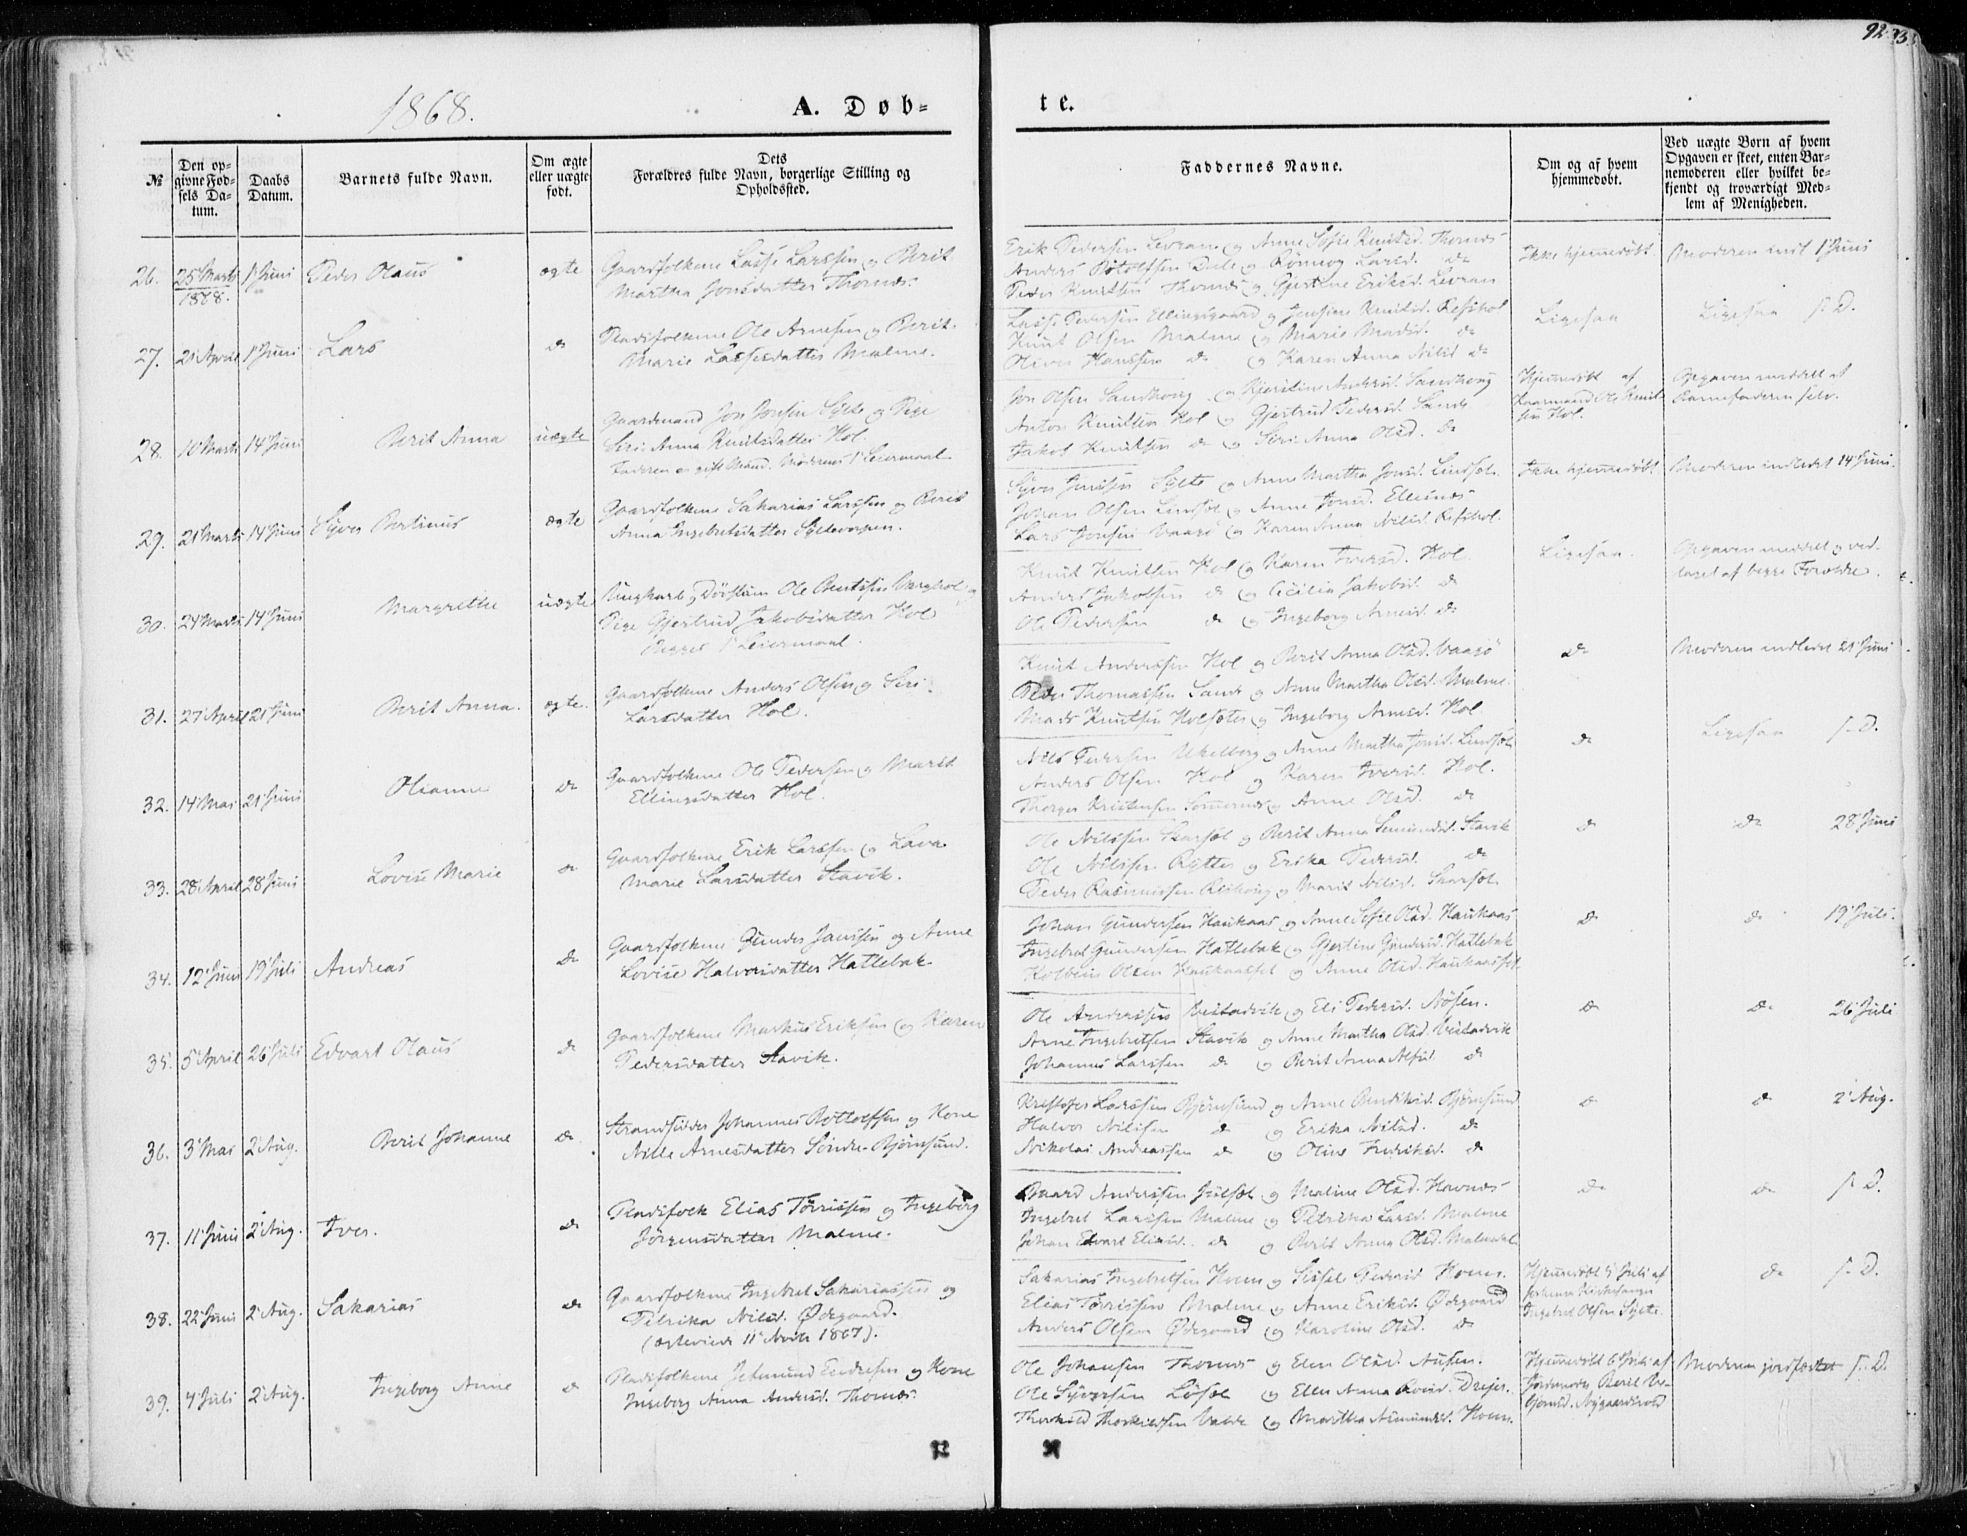 92
1868.
A. Døb-
te.
№
Den opgivne Fødsels Datum.
Daabs Datum.
Barnets fulde Navn.
Om ægte eller uægte født.
Dets Forældres fulde Navn, borgerlige Stilling og Opholdssted.
Faddernes Navne.
Om og af hvem hjemmedøbt.
Ved uægte Børn af hvem Opgaven er skeet, enten Barnemoderen eller hvilket bekjendt og troværdigt Medlem af Menigheden.
26. 25 Marts 1868. 1 Juni Peder Olaus ægte
Gaardfolkene Lasse Larssen og Berit
Martha Jonsdatter Thornes.
Erik Pedersen Levran og Anne Sofie Knutsd. Thornes
Anders Rotolfsen Dale og Rønnog Larsd. do
Peder Knutsen Thornes og Gjertine Eriksd. Levran
Ikke hjemmedøbt
Moderen indl. 1 Juni
27. 21 April 1 Juni Lars do
Pladsfolkene Ole Arnesen og Berit
Marie Lassesdatter Malme.
Lasse Pedersen Ellingsgaard og Jensine Knutsd. Refshol
Knut Olsen Malme og Marie Madsd. do
Oliver Hanssen do og Karen Anna Nilsd do
Ligesaa
Ligesaa s. D.
28. 10 Marts 14 Juni Berit Anna uægte
Gaardmand Jon Jonsen Sylte og Pige
Seri Anna Knutsdatter Hol.
Faderen er gift Mand. Moderens 1 Leiermaal
Jon Olsen Sandhoug og Kjerstine Andersd. Sandhoug
Anton Knutsen Hol og Gjertrud Pedersd. Sande
Jakob Knutsen do og Seri Anna Olsd. do
Hjemmedøbt af
Gaarmand Ole Knutsen Hol.
Opgaven meddelt af
Barnefaderen selv.
29. 21 Marts 14 Juni Syver Bertinus ægte
Gaardfolkene Sakarias Larssen og Berit
Anna Ingebretsdatter Syltevorpen.
Syver Jensen Sylte og Anne Martha Jonsd. Lindset
Johan Olsen Lindset og Anne Jonsd. Ellesnes
Lars Jonsen Vaagø og Karen Anna Nilsd. Refshol.
Ikke hjemmedøbt.
Moderen indledet 14 Juni.
30. 24 Marts 14 Juni Margrethe uægte
Ungkarl, Dövstum Ole Bentsen Berghol og
Pige Gjertrud Jakobsdatter Hol
Begges 1 Leiermaal.
Knut Knutsen Hol og Karen Iversd. Hol.
Anders Jakobsen do og Cecilia Jakobsd. do
Ole Pedersen do og Ingeborg Arnesd. do
Ligesaa.
Opgaven meddelt og ved-
taget af begge Forældre.
31. 27 April 21 Juni Berit Anna. ægte.
Gaardfolkene Anders Olsen og Seri
Larsdatter Hol.
Knut Anderssen Hol og Berit Anna Olsd. Vaagø
Peder Thomassen Sande og Anne Martha Olsd. Malme.
Mads Knutsen Holseter og Ingeborg Arnesd. Hol
do
Moderen indledet 21 Juni
32. 14 Mai 21 Juni Olianna do
Gaardfolkene Ole Pedersen og Marit
Ellingsdatter Hol.
Nils Pedersen Ukelberg og Anne Martha Jonsd. Lindset
Anders Olsen Hol og Karen Iversd. Hol.
Thorger Kristensen Sommernes og Anne Olsd. do
do
Ligesaa s. D.
33. 28 April 28 Juni Lovise Marie do
Gaardfolkene Erik Larssen og Lava
Marie Larsdatter Stavik.
Ole Nilssen Skarset og Berit Anna Semundsd. Stavik
Ole Nilssen Rytter og Erika Pedersd. do
Peder Rasmussen og Marit Nilsd. Skarset
do
do 28 Juni
34. 12 Juni 19 Juli Andreas do
Gaardfolkene Gunder Janssen og Anne
Lovise Halvorsdatter Hattebak
Johan Gundersen Haukaas og Anne Sofie Olsd. Haukaas
Ingebret Gundersen Hattebak og Gjertine Gundersd. Hattebak
Kolbein Olsen Haukaasset og Anne Olsd. Haukaasset
do
do 19 Juli.
35. 5 April 26 Juli Edvart Olaus do
Gaardfolkene Markus Eriksen og Karen
Pedersdatter Stavik.
Ole Anderssen Vestadvik og Eli Pedersd. Nøsen.
Arne Ingebretsen Stavik og Anne Martha Olsd. Vestadvik
Johannes Larssen do og Berit Anna Alfsd. do
do
do 26 Juli
36. 3 Mai 2 Aug. Berit Johanne do
Strandsidder Johannes Rottolfsen og Kone
Nille Arnesdatter Söndre-Björnsund.
Kristofer Larssen Björnsund og Anne Bendiksd. Björnsund
Halvor Nilsen do og Erika Nilsd. do
Nikolai Andreassen do og Oline Fredriksd. do
do
do 2 Aug.
37. 11 Juni 2 Aug. Iver. do
Pladsfolk Elias Tørrissen og Ingeborg
Jörgensdatter Malme.
Baard Anderssen Julset og Maline Olsd. Havnes
Ingebret Larssen Malme og Petrika Larsd. Malme
Johan Edvart Eliasd. do og Berit Anna Olsd. Malmedal
do
do s. D.
38. 22 Juni 2 Aug. Sakarias do
Gaardfolkene Ingebret Sakariassen og
Petrika Nilsd. Ødegaard.
(ægteviede 11 Novbr 1867).
Sakarias Ingebretsen Hoem og Sissel Pedersd Hoem.
Elias Tørrissen Malme og Anne Eriksd. Ødegaard
Anders Olsen Ødegaard og Karoline Olsd. do
Hjemmedøbt 5 Juli af
Ingebret Olsen Sylte.
do s. D.
39. 4 Juli 2 Aug. Ingeborg Anne do
Pladsfolkene Jetmund Endresen og Kone
Ingeborg Anna Andersd. Thornes.
Ole Johansen Thornes og Elen Olsd. Ausen.
Ole Syversen Löset og Ellen Anna Roisd. Drejer.
Thorkild Thorkildsen Valde og Martha Asmundsd. Hoem.
Hjemmedøbt 6 Juli af
Jordemoder Berit
Nygaardsvold
Moderen jordfæstet s. D.